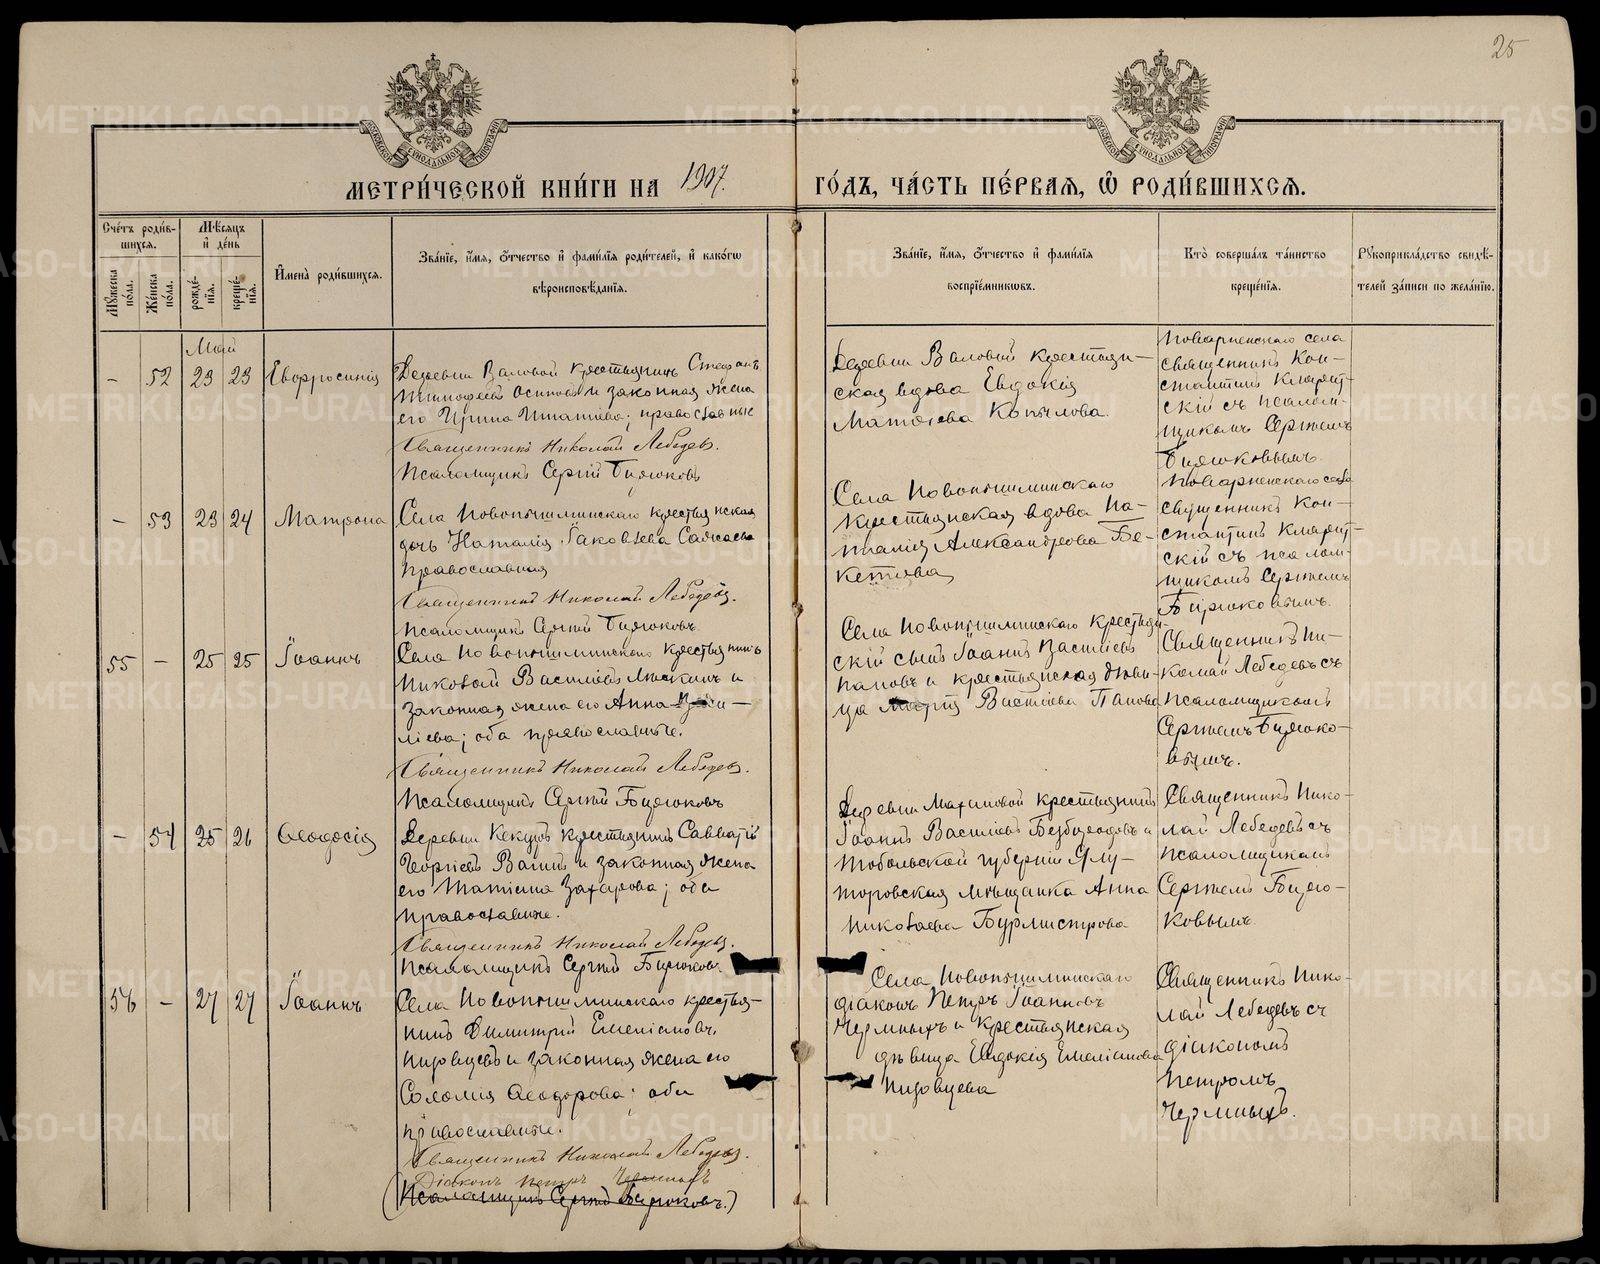 25
МОСКОВСКОЙ СѴНОДАЛЬНОЙ ТИПОГРАФІИ
МОСКОВСКОЙ СѴНОДАЛЬНОЙ ТИПОГРАФІИ
МЕТРИ́ЧЕСКОЙ КНИ́ГИ НА 1907.
ГО́ДЪ, ЧА́СТЬ ПЕ́РВАЯ, Ѡ҆ РОДИ́ВШИХСЯ.
Сче́тъ роди́в-
шихся.
Мꙋ́жеска по́ла.
Же́нска по́ла.
Мѣ́сяцъ
и҆ де́нь
рожде́-
нія.
креще́-
нія.
И҆мена̀ роди́вшихся.
Зва́ніе, и҆́мя, ѻ҆́тчество и҆ фами́лія роди́телей, и҆ како́гѡ
вѣроисповѣ́данія.
Зва́ніе, и҆́мя, ѻ҆́тчество и҆ фами́лія
воспріе́мниковъ.
Кто̀ соверша́лъ та́инство
креще́нія.
Рꙋкоприкла́дство свидѣ́-
телей за́писи по жела́нію.
Май
- 52 23 23 Евфросинія
Деревни Валовой крестьянинъ Стефанъ
Тимофеевъ Осиповъ и законная жена
его Ирина Игнатіева; православные
Священникъ Николай Лебедевъ.
Псаломщикъ Сергій Бирюковъ
Деревни Валовой крестьян-
ская вдова Евдокія
Матѳеева Копылова.
Поварненскаго села
священникъ Кон-
стантинъ Кларит-
скій съ псалом-
щикомъ Сергіемъ
Бирюковымъ.
- 53 23 24 Матрона
Села Новопышминскаго крестьянская
дочь Наталія Іаковлева
православная
Священникъ Николай Лебедевъ.
Псаломщикъ Сергій Бирюковъ
Села Новопышминскаго
крестьянская вдова На-
талія Александрова Бе-
кетова
Поварненскаго села
священникъ Кон-
стантинъ Кларит-
скій съ псалом-
щикомъ Сергіемъ
Бирюковымъ.
55 - 25 25 Іоаннъ
Села Новопышминскаго крестьянинъ
Николай Василіевъ и
законная жена его Анна
ліева; оба православные.
Священникъ Николай Лебедевъ.
Псаломщикъ Сергій Бирюковъ
Села Новопышминскаго крестьян-
скій сынъ Іоаннъ Василіевъ
Пановъ и крестьянская дѣви-
ца Марія Василіева Панова
Священникъ Ни-
колай Лебедевъ съ
псаломщикомъ
Сергіемъ Бирюко-
вымъ.
- 54 25 26 Ѳеодосія
Деревни Кекуръ крестьянинъ Савватій
Георгіевъ и законная жена
его Татіана Захарова; оба
православные.
Священникъ Николай Лебедевъ.
Псаломщикъ Сергій Бирюковъ.
Деревни Махиновой крестьянинъ
Іоаннъ Василіевъ Безбородовъ и
Тобольской губерніи Ялу-
торовская мѣщанка Анна
Николаева Бурмистрова
Священникъ Нико-
лай Лебедевъ съ
псаломщикомъ
Сергіемъ Бирю-
ковымъ.
56 - 27 27 Іоаннъ
Села Новопышминскаго крестья-
нинъ Димитрій Емеліановъ
Низовцевъ и законная жена его
Соломія Ѳеодорова; оба
православные.
Священникъ Николай Лебедевъ.
Діаконъ Петръ Черныхъ
(Псаломщикъ Сергій Бирюковъ.)
Села Новопышминскаго
діаконъ Петръ Іоанновъ
Черныхъ и крестьянская
дѣвица Евдокія Емеліанова
Низовцева
Священникъ Нико-
лай Лебедевъ съ
діакономъ
Петромъ
Черныхъ.
METRIKI.GASO-URAL.RU